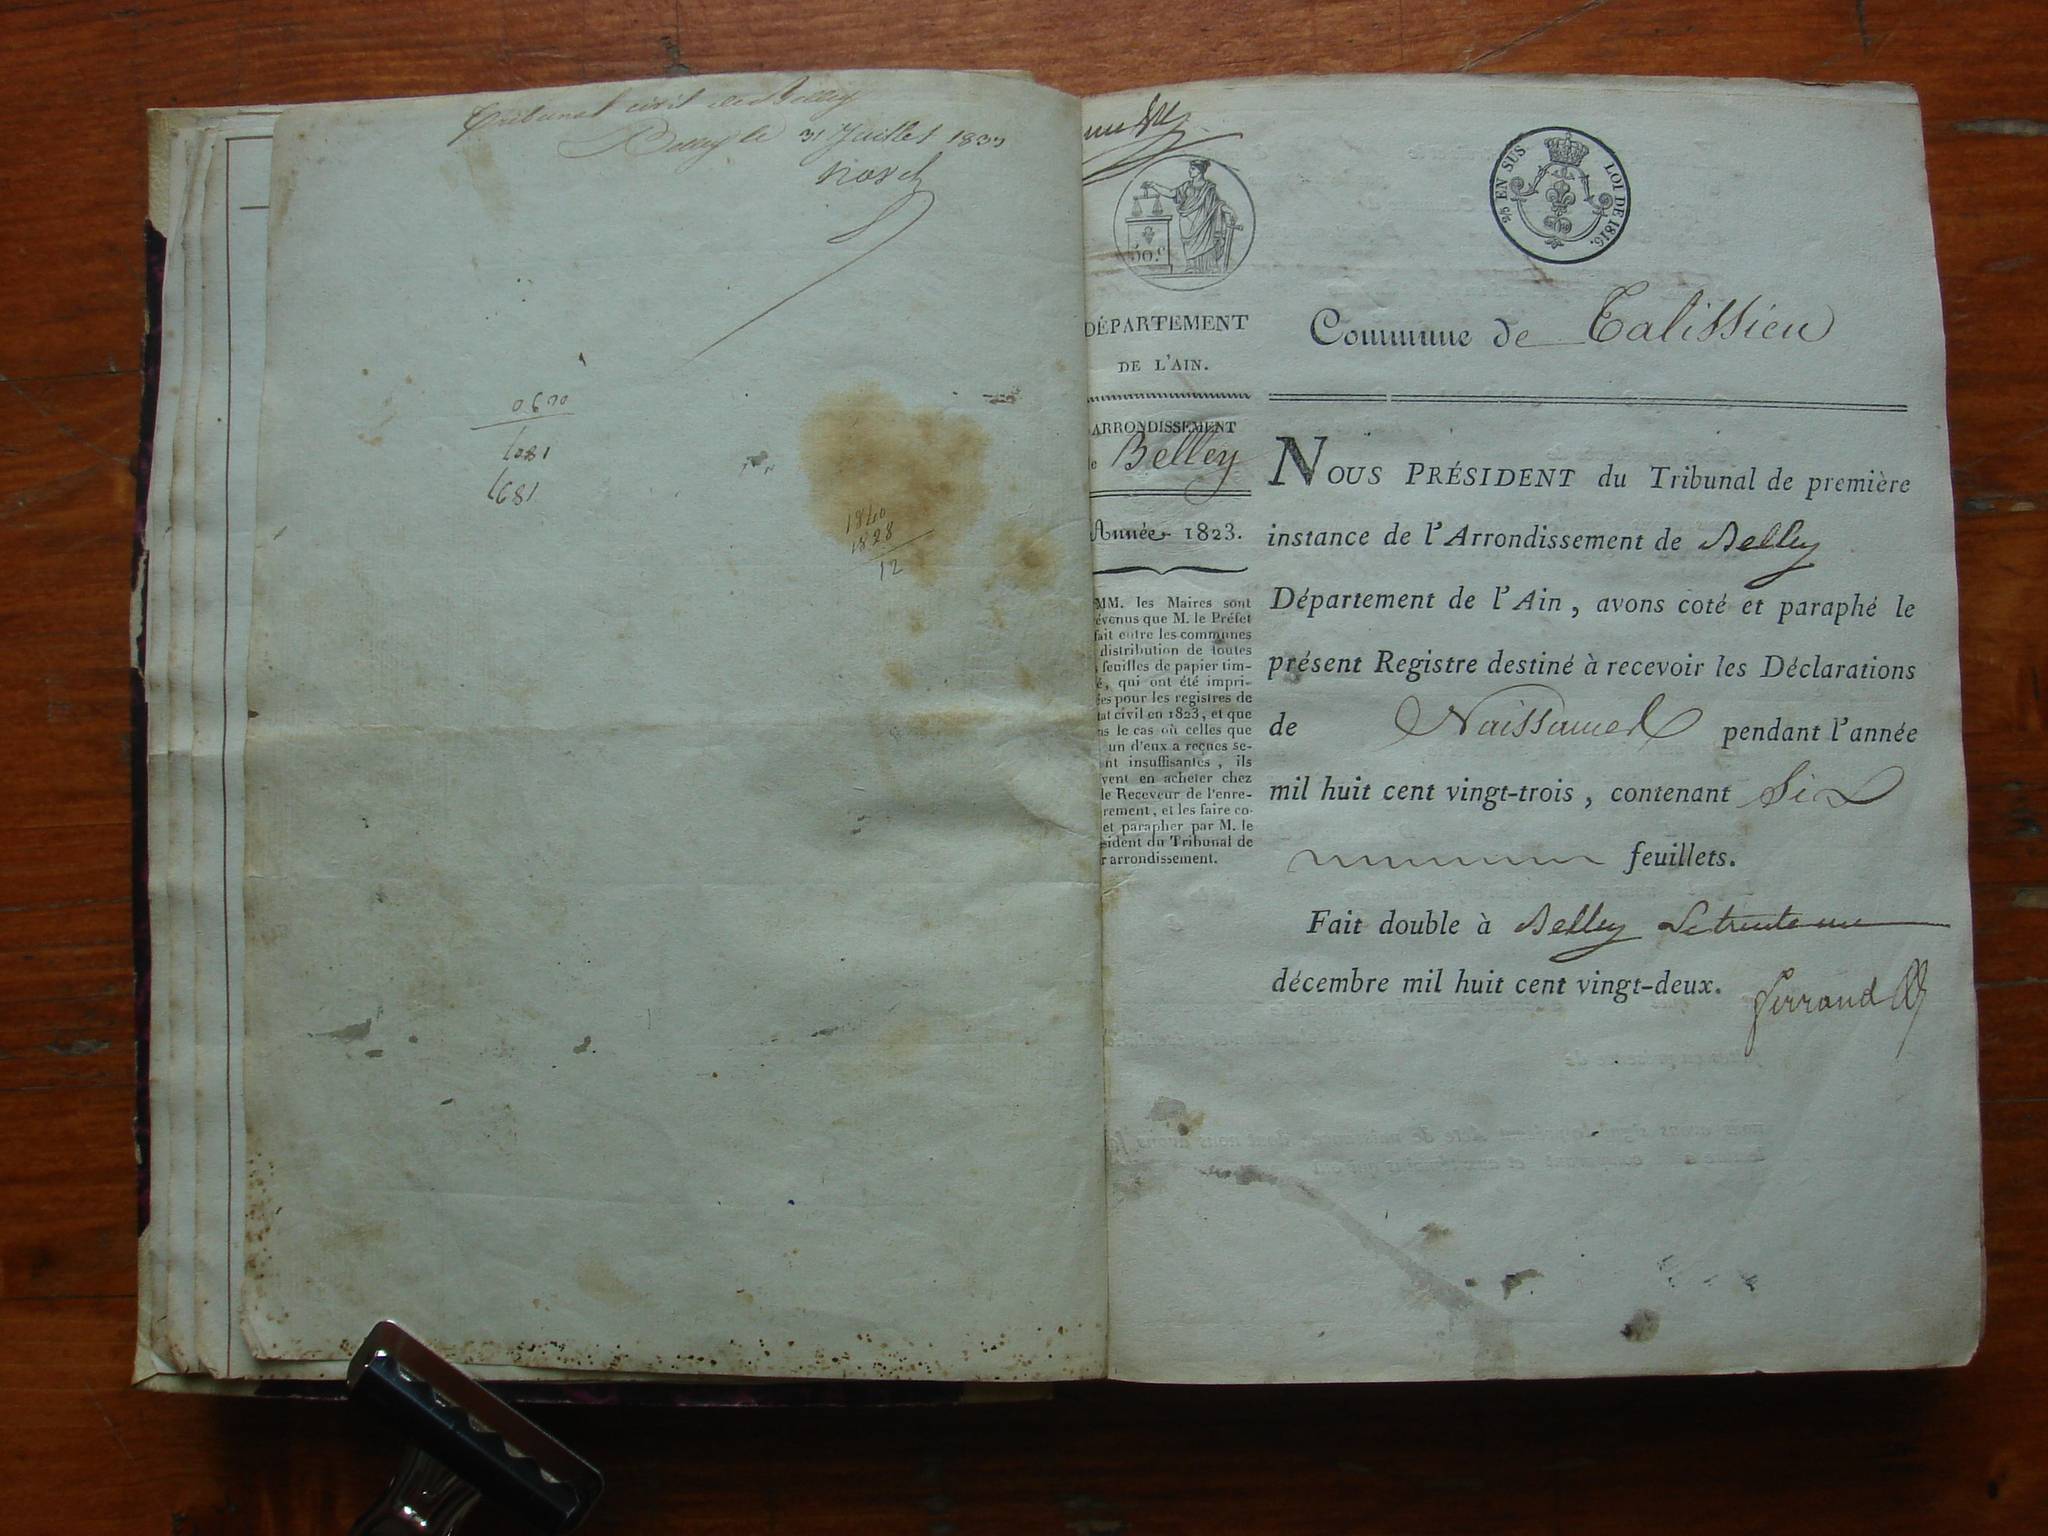 Tribunal civil de Belley
Belley le 31 Juillet 1833
0690
1081
1681
1840
1828
12
50 c
25 EN SUS LOI DE 1816.
DÉPARTEMENT
DE L'AIN.
ARRONDISSEMENT
de Belley
Année 1823.
MM. les Maires sont
évenus que M. le Préfet
fait entre les communes
distribution de toutes
feuilles de papier tim-
é, qui ont été impri-
ées pour les registres de
tat civil en 1823, et que
ns le cas où celles que
un d'eux a reçues se-
nt insuffisantes, ils
vent en acheter chez
le Receveur de l'enre-
rement, et les faire co-
et parapher par M. le
sident du Tribunal de
r arrondissement.
Commune de Talissieu
NOUS PRÉSIDENT du Tribunal de première
instance de l'Arrondissement de Belley
Département de l'Ain, avons coté et paraphé le
présent Registre destiné à recevoir les Déclarations
de Naissances pendant l'année
mil huit cent vingt-trois, contenant Six
feuillets.
Fait double à Belley le trente un
décembre mil huit cent vingt-deux.